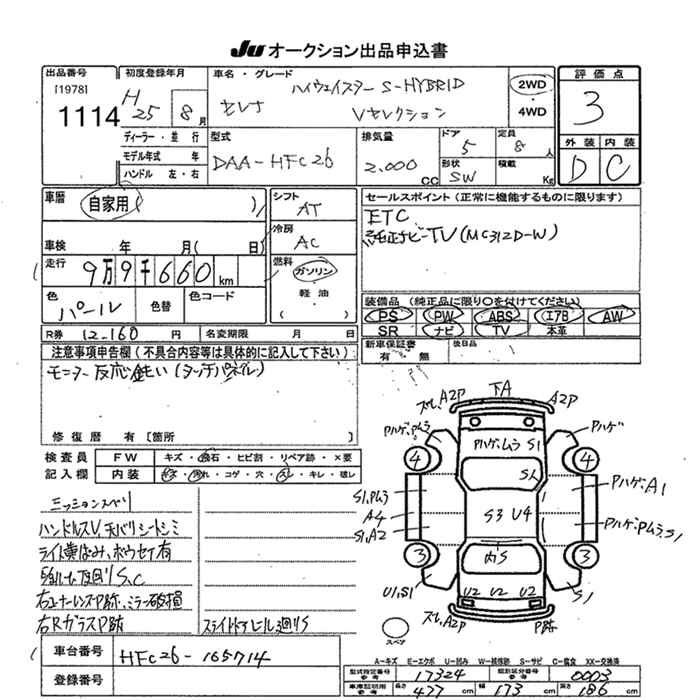 JU オークション出品申込書
出品番号
[1978]
1114
初度登録年月
H25 8月
車名・グレード
ハイウェイスター S-HYBRID
セレナ Vセレクション
2WD
・
4WD
評価点
3
外装 内装
D C
ディーラー・並行
モデル年式 年
ハンドル 左・右
型式
DAA-HFC26
排気量
2.000 CC
ドア
5
定員
8人
形状
SW
積載
Kg
車歴
自家用( )
車検 年 月( 日)
走行
9万9千660km
色
パール
色替
色コード
シフト
AT
冷房
AC
燃料
ガソリン
軽油
( )
セールスポイント(正常に機能するものに限ります)
ETC
純正ナビTV(MC312D-W)
装備品(純正品に限り○を付けてください)
PS PW ABS エアB AW
SR ナビ TV 本革
新車保証書
有・無
後日品
R券 12-160円
名変期限 月 日
注意事項申告欄(不具合内容等は具体的に記入して下さい)
モニター反応鈍い(タッチパネル)
修復歴 有 [箇所 ]
検査員
記入欄
FW キズ・飛石・ヒビ割・リペア跡・×要
内装 キズ・汚れ・コゲ・穴・スレ・キレ・破レ
ミッションスベリ
ハンドルスレ、天バリシートシミ
ライト黄ばみ、ボウセイ有
右コーナーレンズP跡、ミラー破損
右RガラスP跡
スライドドアレール廻りS
車台番号
HFC26-165714
登録番号
ズレ、A2P
下A
A2P
Pハゲ、ムラ
Pハゲ、ムラ S1
Pハゲ
4
4
S1、Pムラ
A4
S1、A2
S3 U4
Pハゲ、A1
Pハゲ、Pムラ、S1
3
3
内S
U1、S1
U2 U2 U2
S1
ズレ、A2P
P跡
スペア
A-キズ E-エクボ U-凹み W-補修跡 S-サビ C-腐食 XX-交換済
型式指定番号
参考
17324
類別区分番号
参考
0003
車庫証明用
参考
長さ 477cm
幅 173cm
高さ 186cm